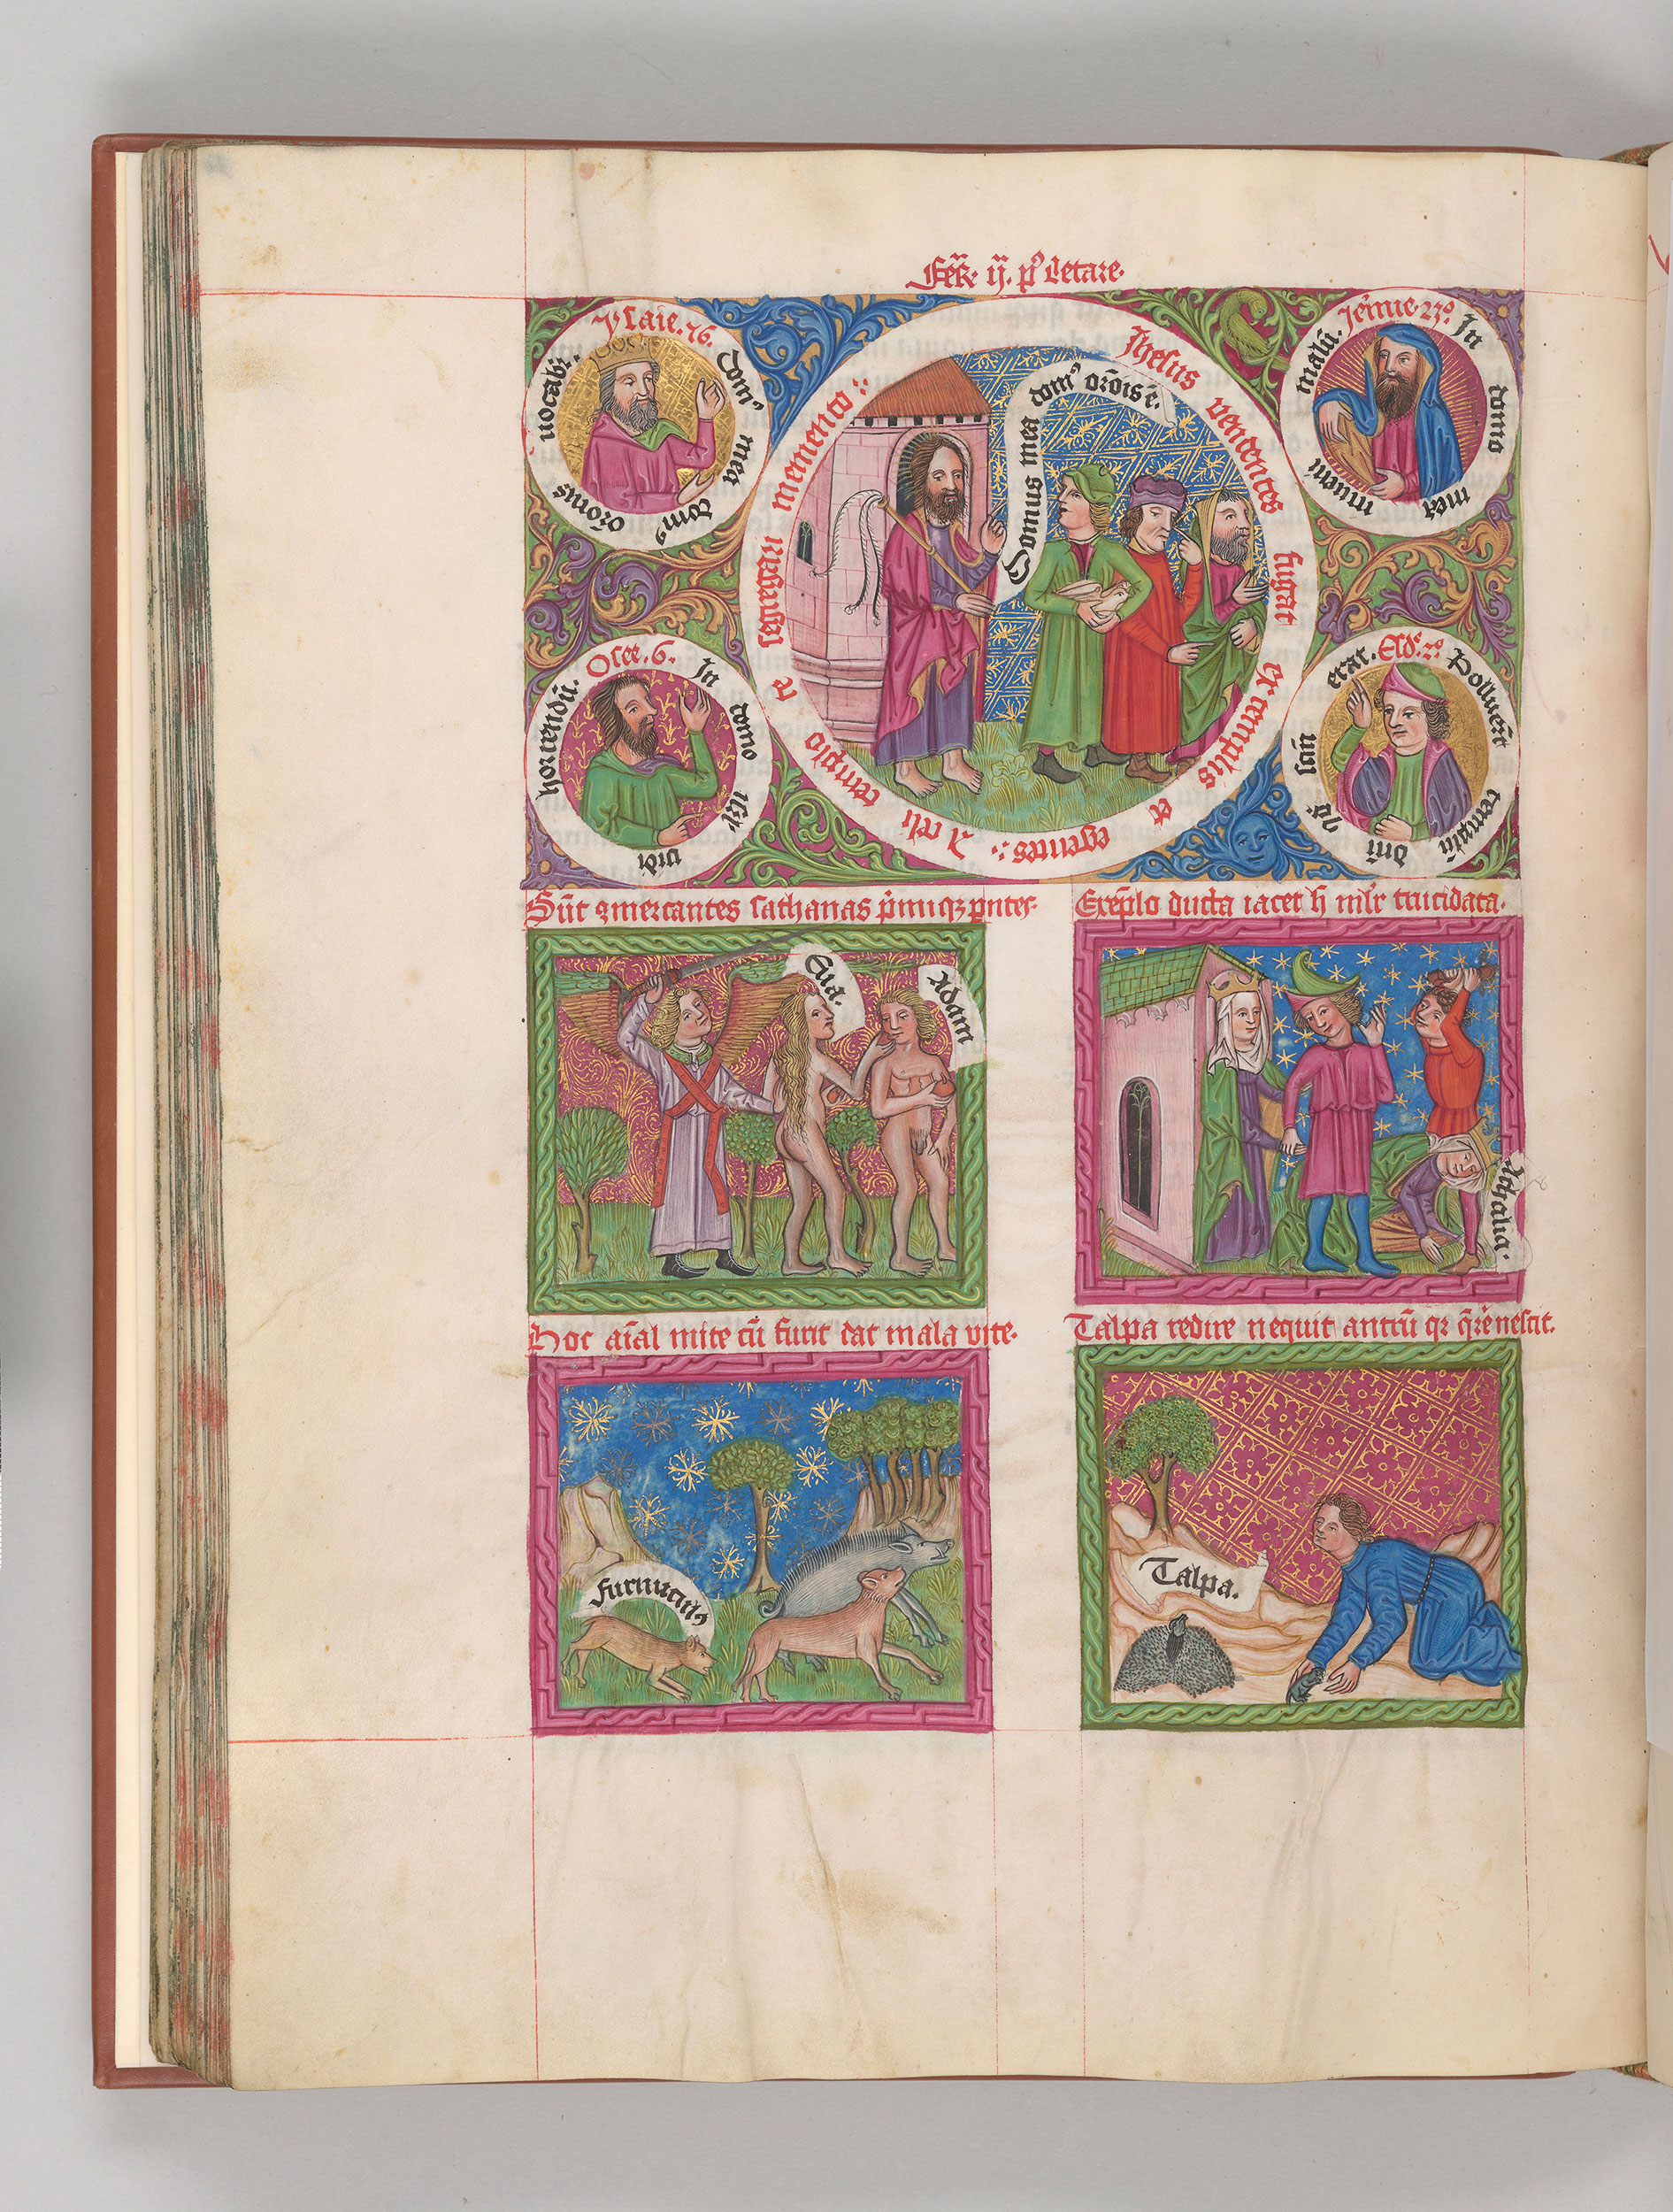 Fer̄. ij. pº letare.
Ysaie. 56.
Dom9 mea dom9 or̄onis uocabr̄.
Jer̄mie. 23º
Jn domo mea inueni malū.
Jhesus vendentes fugat ex templis et egentes: A celi templo te segregari memento:
Domus mea dom9 or̄ois ē.
Osee. 6.
Jn domo isr̄l vidi horrendū.
Polluer̄t templū dn̄i qd̄ san̄ erat.
Sūt 9mercantes sathanas p̄miqz pn̄tes.
Exēplo ducta iacet h̄ mlr̄ trucidata.
Eua.
Adam
Athalia.
Hoc aīal mite cū furit dat mala vite.
Talpa redire nequit antrū qr q̄rē nescit.
Talpa.